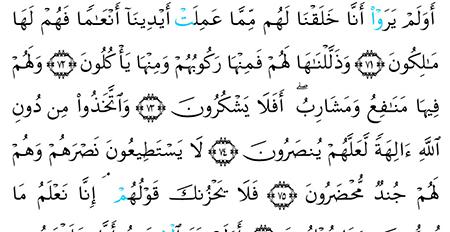 أَوَلَمْ يَرَوْا۟ أَنَّا خَلَقْنَا لَهُم مِّمَّا عَمِلَتْ أَيْدِينَآ أَنْعَـٰمًا فَهُمْ لَهَا
مَـٰلِكُونَ ﴿٧١﴾ وَذَلَّلْنَـٰهَا لَهُمْ فَمِنْهَا رَكُوبُهُمْ وَمِنْهَا يَأْكُلُونَ ﴿٧٢﴾ وَلَهُمْ
فِيهَا مَنَـٰفِعُ وَمَشَارِبُ ۖ أَفَلَا يَشْكُرُونَ ﴿٧٣﴾ وَٱتَّخَذُوا۟ مِن دُونِ
ٱللَّهِ ءَالِهَةً لَّعَلَّهُمْ يُنصَرُونَ ﴿٧٤﴾ لَا يَسْتَطِيعُونَ نَصْرَهُمْ وَهُمْ
لَهُمْ جُندٌ مُّحْضَرُونَ ﴿٧٥﴾ فَلَا يَحْزُنكَ قَوْلُهُمْ ۘ إِنَّا نَعْلَمُ مَا